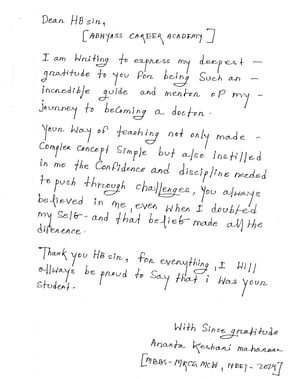 Dear HB sir,
[ADHYASS CAREER ACADEMY]
I am Writing to express my deepest -
gratitude to you For being Such an -
incredible guide and mentor of my -
journey to becoming a doctor.
Your Way of teaching not only made -
Complex concept Simple but also instilled
in me the Confidence and discipline needed
to push through challenges, You always
believed in me, even When I doubted
my Self- and that belief made all the
diference.
Thank you HB sir, for everything, I Will
allways be proud to Say that i Was your
Student.
With Since gratitude
Ananta Keshari
[MBBS- MKCG MCH, NEET- 2024]